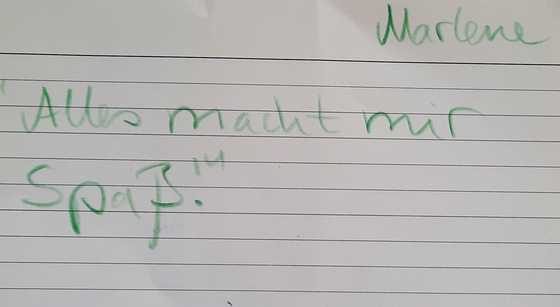 Marlene
"Alles macht mir
Spaß."